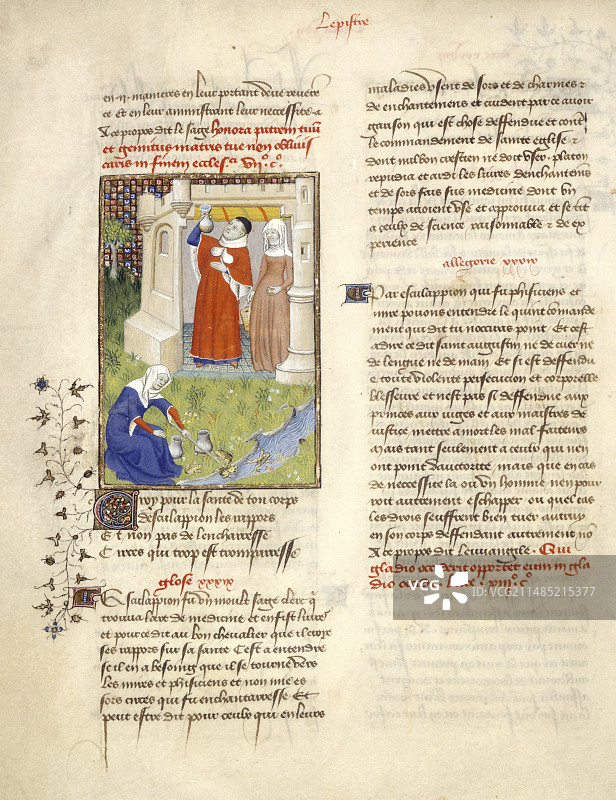 Lepistre
en .ii. manieres en leur portant deue revere
ce et en leur aministrant leur necessite. a
ce propos dit le sage honora patrem tuu
et gemitus matris tue non oblivis
caris in finem eccles. vii. c.
Croy pour la sante de ton corps
desculappion les rappors
Et non pas de lencharresse
Circes qui trop est tromparresse
glose xxxix
Esculappion fu un moult sage clerc q
trouva lart de medicine et en fist livres
et pource dit au bon chevalier que il croye
ses rappors sur sa sante Cest a entendre
se il en a besoing que il se tourne vers
les mires et phisiciens et non mie es
sors circes qui fu enchantarresse Et
peut estre dit pour ceulx qui en leurs
maladies usent de sors et de charmes et
de enchantemens et cuident par ce avoir
garison qui est chose deffendue et cont
le commandement de sainte eglise et
dont nul bon crestien ne doit user. platon
repudia et ardi les livres denchantemens
et de sors fais sus medicine dont un
temps avoient use et approuva et se tit
a ceulx de science raisonnable et de ex
perience
allegorie xxxix
Par esculappion qui fu phisiciens et
mire povons entendre le quint commande
ment qui dit tu nocciras point Et cest
adire ce dit saint augustin ne de cuer ne
de langue ne de main Et si est deffendu
e toute violente percucion et corporelle
blesseure et nest pas si deffendue aux
princes aux juges et aux maistres de
justice mettre a mort les malfaicteurs
mais tant seulement a ceulx qui nen
ont point dauctorite mais que en cas
de necessite la ou un homme nen pour
roit autrement eschapper ou quel cas
les drois seuffrent bien tuer autruy
en son corps deffendant autrement no
A ce propos dit leuvangile. Qui
gladio occiderit oportet eum in gla
dio occidi. Luce. xxii. c.
视觉中国
VCG
ID:VCG211485215377
gettyimages